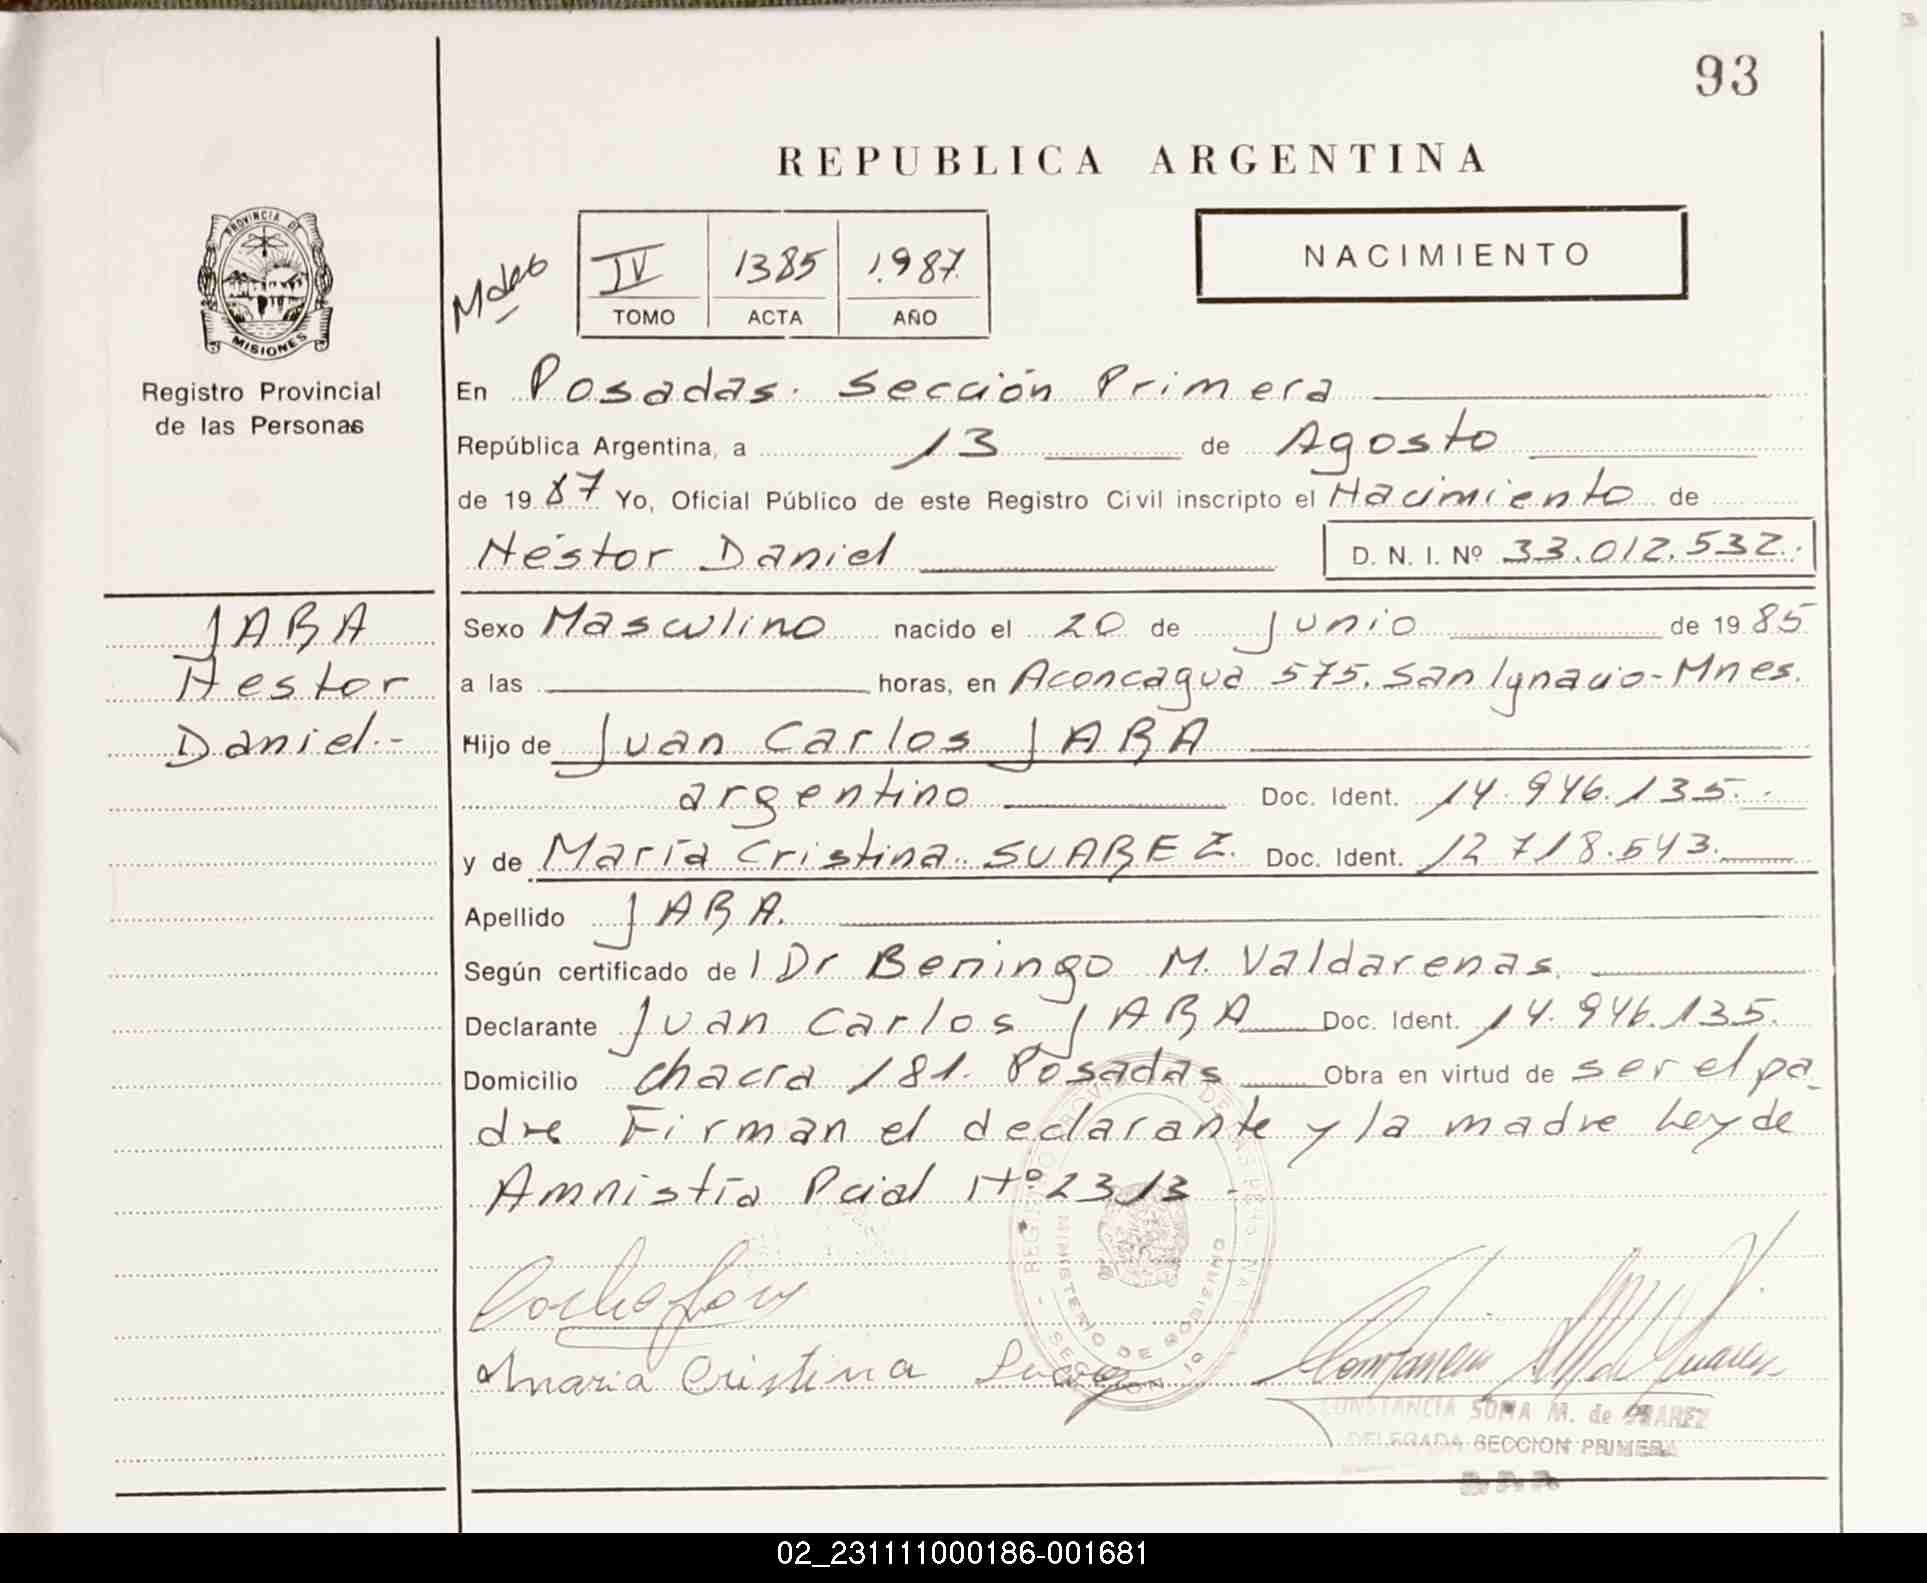 93
REPUBLICA ARGENTINA
PROVINCIA DE
MISIONES
Registro Provincial
de las Personas
IV 1385 1987
TOMO ACTA AÑO
NACIMIENTO
En Posadas. Sección Primera
República Argentina, a 13 de Agosto
de 19 87 Yo, Oficial Público de este Registro Civil inscripto el Nacimiento de
Néstor Daniel D. N. I. Nº 33.012.532.
JARA
Nestor
Daniel.-
Sexo Masculino nacido el 20 de Junio de 19 85
a las horas, en Aconcagua 575. San Ignacio-Mnes.
Hijo de Juan Carlos JARA
argentino Doc. Ident. 14.946.135.-
y de María Cristina SUAREZ. Doc. Ident. 12.718.543.
Apellido JARA.
Según certificado de l Dr Beningo M. Valdarenas.
Declarante Juan Carlos JARA Doc. Ident. 14.946.135.
Domicilio chacra 181. Posadas Obra en virtud de ser el pa-
dre Firman el declarante y la madre Ley de
Amnistía Pcial Nº 2313 -
Maria Cristina
CONSTANCIA SONIA M. de SUAREZ
DELEGADA SECCION PRIMERA
02_231111000186-001681